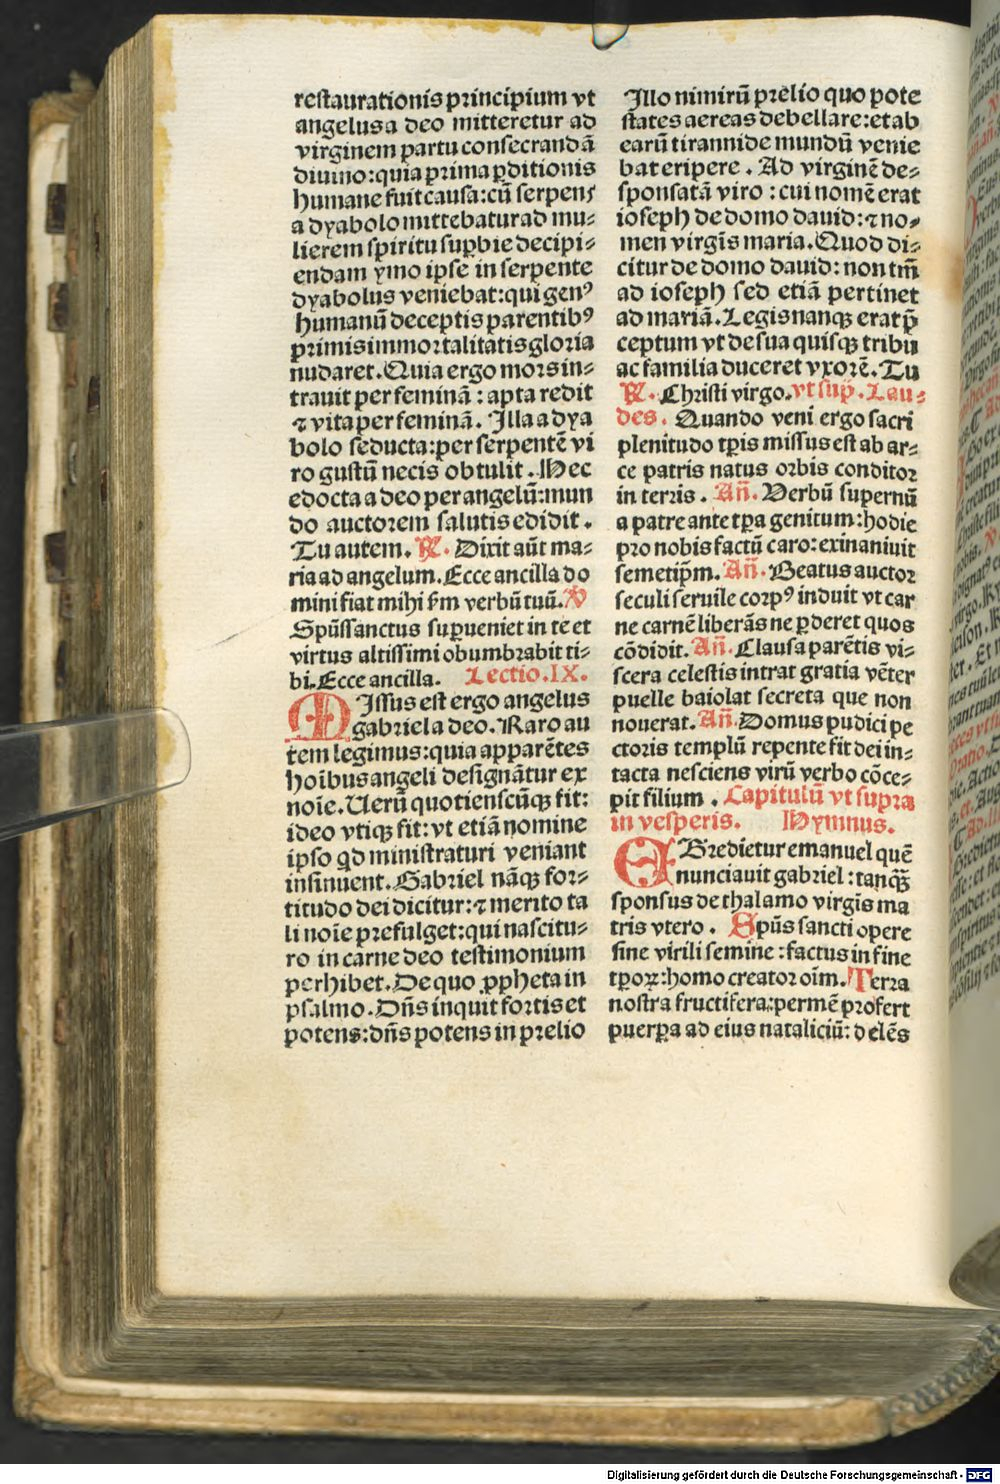 restaurationis principium vt
angelus a deo mitteretur ad
virginem partu consecrandã
diuino: quia prima ꝑditionis
humane fuit causa: cũ serpens
a dyabolo mittebatur ad mu-
lierem spiritu suꝑbie decipi-
endam ymo ipse in serpente
dyabolus veniebat: qui genꝰ
humanũ deceptis parentibꝰ
primis immortalitatis gloria
nudaret. Quia ergo mors in-
trauit per feminã: apta redit
⁊ vita per feminã. Illa a dya
bolo seducta: per serpentẽ vi
ro gustũ necis obtulit. Hec
edocta a deo per angelũ: mun
do auctorem salutis edidit.
Tu autem. ℟. Dixit aũt ma-
ria ad angelum. Ecce ancilla do
mini fiat mihi ẜm verbũ tuũ. ℣
Spũssanctus suꝑueniet in te et
virtus altissimi obumbrabit ti-
bi. Ecce ancilla. Lectio. IX.
MIssus est ergo angelus
gabriel a deo. Raro au
tem legimus: quia apparẽtes
hoĩbus angeli designãtur ex
noĩe. Uerũ quotienscũqꝫ fit:
ideo vtiqꝫ fit: vt etiã nomine
ipso qđ ministraturi veniant
insinuent. Gabriel nãqꝫ for-
titudo dei dicitur: ⁊ merito ta
li noĩe prefulget: qui nascitu-
ro in carne deo testimonium
perhibet. De quo ꝓpheta in
psalmo. Dñs inquit fortis et
potens: dñs potens in prelio
Illo nimirũ prelio quo pote
states aereas debellare: et ab
earũ tirannide mundũ venie
bat eripere. Ad virginẽ de-
sponsatã viro: cui nomẽ erat
ioseph de domo dauid: ⁊ no-
men virgĩs maria. Quod di-
citur de domo dauid: non tm̃
ad ioseph sed etiã pertinet
ad mariã. Legis nanqꝫ erat p̃
ceptum vt de sua quisqꝫ tribu
ac familia duceret vxorẽ. Tu
℟. Christi virgo. vt sup̃. Lau-
des. Quando veni ergo sacri
plenitudo tꝑis missus est ab ar-
ce patris natus orbis conditor
in terris. Añ. Verbũ supernũ
a patre ante tꝑa genitum: hodie
pro nobis factũ caro: exinaniuit
semetip̃m. Añ. Beatus auctor
seculi seruile corpꝰ induit vt car
ne carnẽ liberãs ne ꝑderet quos
cõdidit. Añ. Clausa parẽtis vi-
scera celestis intrat gratia vẽter
puelle baiolat secreta que non
nouerat. Añ. Domus pudici pe
ctoris templũ repente fit dei in-
tacta nesciens virũ verbo cõce-
pit filium. Capitulũ vt supra
in vesperis. Hymnus.
EGredietur emanuel quẽ
nunciauit gabriel: tanqꝫ̃
sponsus de thalamo virgĩs ma
tris vtero. Spũs sancti opere
sine virili semine: factus in fine
tꝑoꝝ: homo creator oĩm. Terra
nostra fructifera: permẽ profert
puerpa ad eius nataliciũ: d elẽs
Digitalisierung gefördert durch die Deutsche Forschungsgemeinschaft - DFG